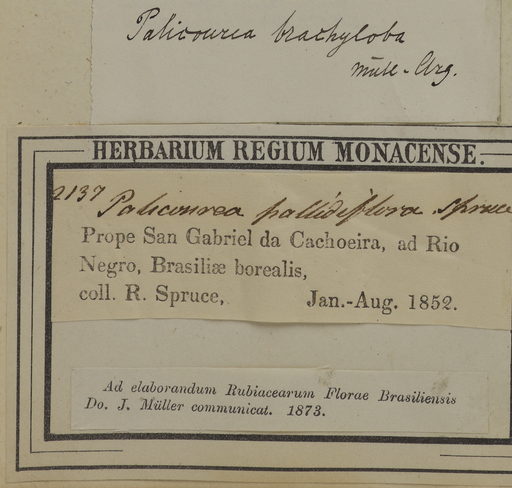 Palicourea brachyloba
Müll-Arg.
HERBARIUM REGIUM MONACENSE.
2137 Palicourea pallidiflora Spruce
Prope San Gabriel da Cachoeira, ad Rio
Negro, Brasiliæ borealis,
coll. R. Spruce, Jan.-Aug. 1852.
Ad elaborandum Rubiacearum Florae Brasiliensis
Do. J. Müller communicat. 1873.